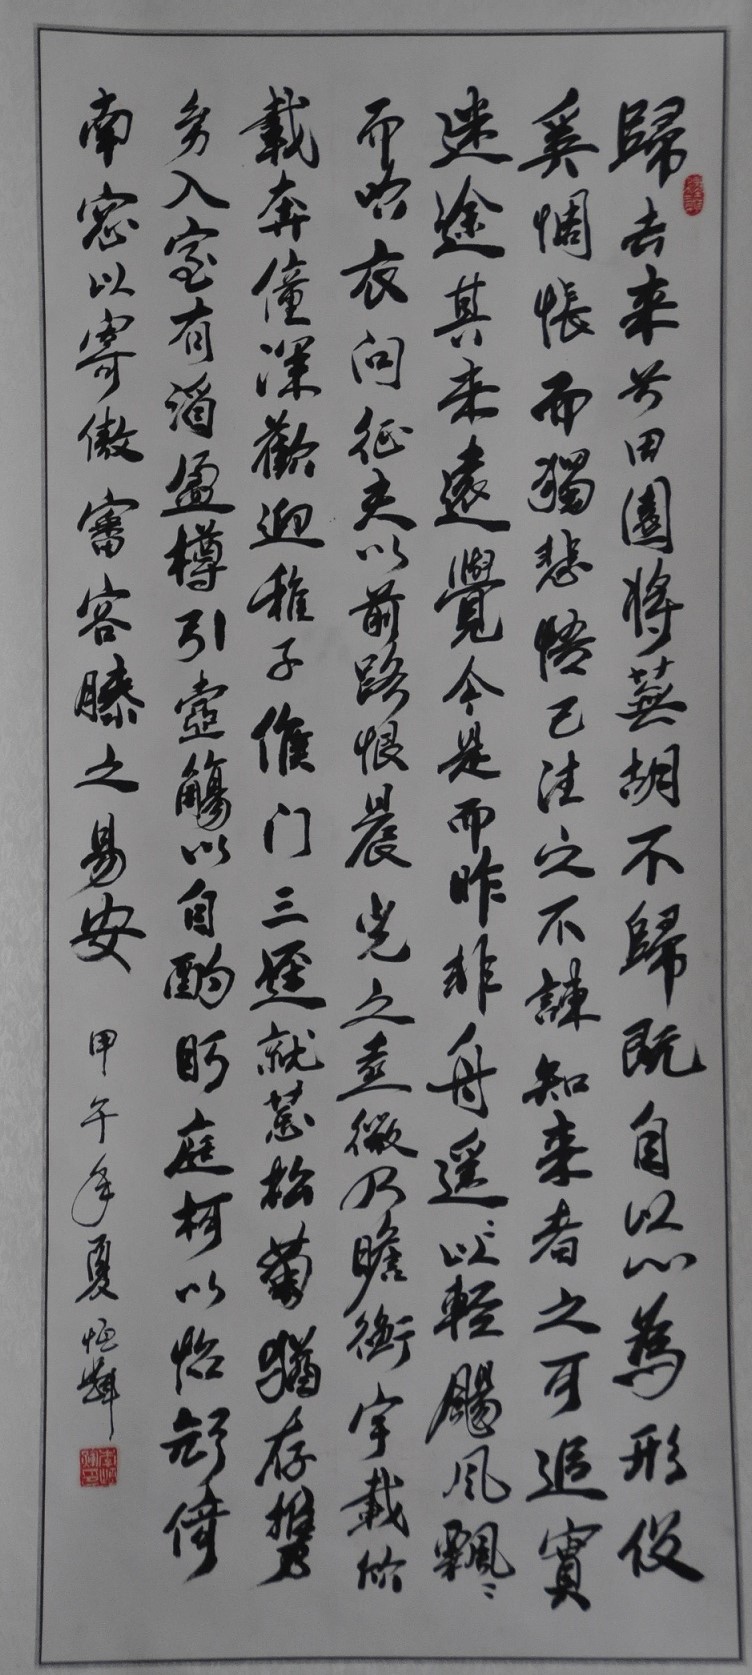 歸去來兮田園將蕪胡不歸既自以心為形役
奚惆悵而獨悲悟已往之不諫知来者之可追實
迷途其未遠覺今是而昨非舟遥遥以輕颺風飄飄
而吹衣问征夫以前路恨晨光之熹微乃瞻衡宇載欣
載奔僮僕歡迎稚子候门三逕就荒松菊猶存攜
幼入室有酒盈樽引壺觴以自酌眄庭柯以怡顔倚
南窓以寄傲審容膝之易安
甲午年夏恒輝